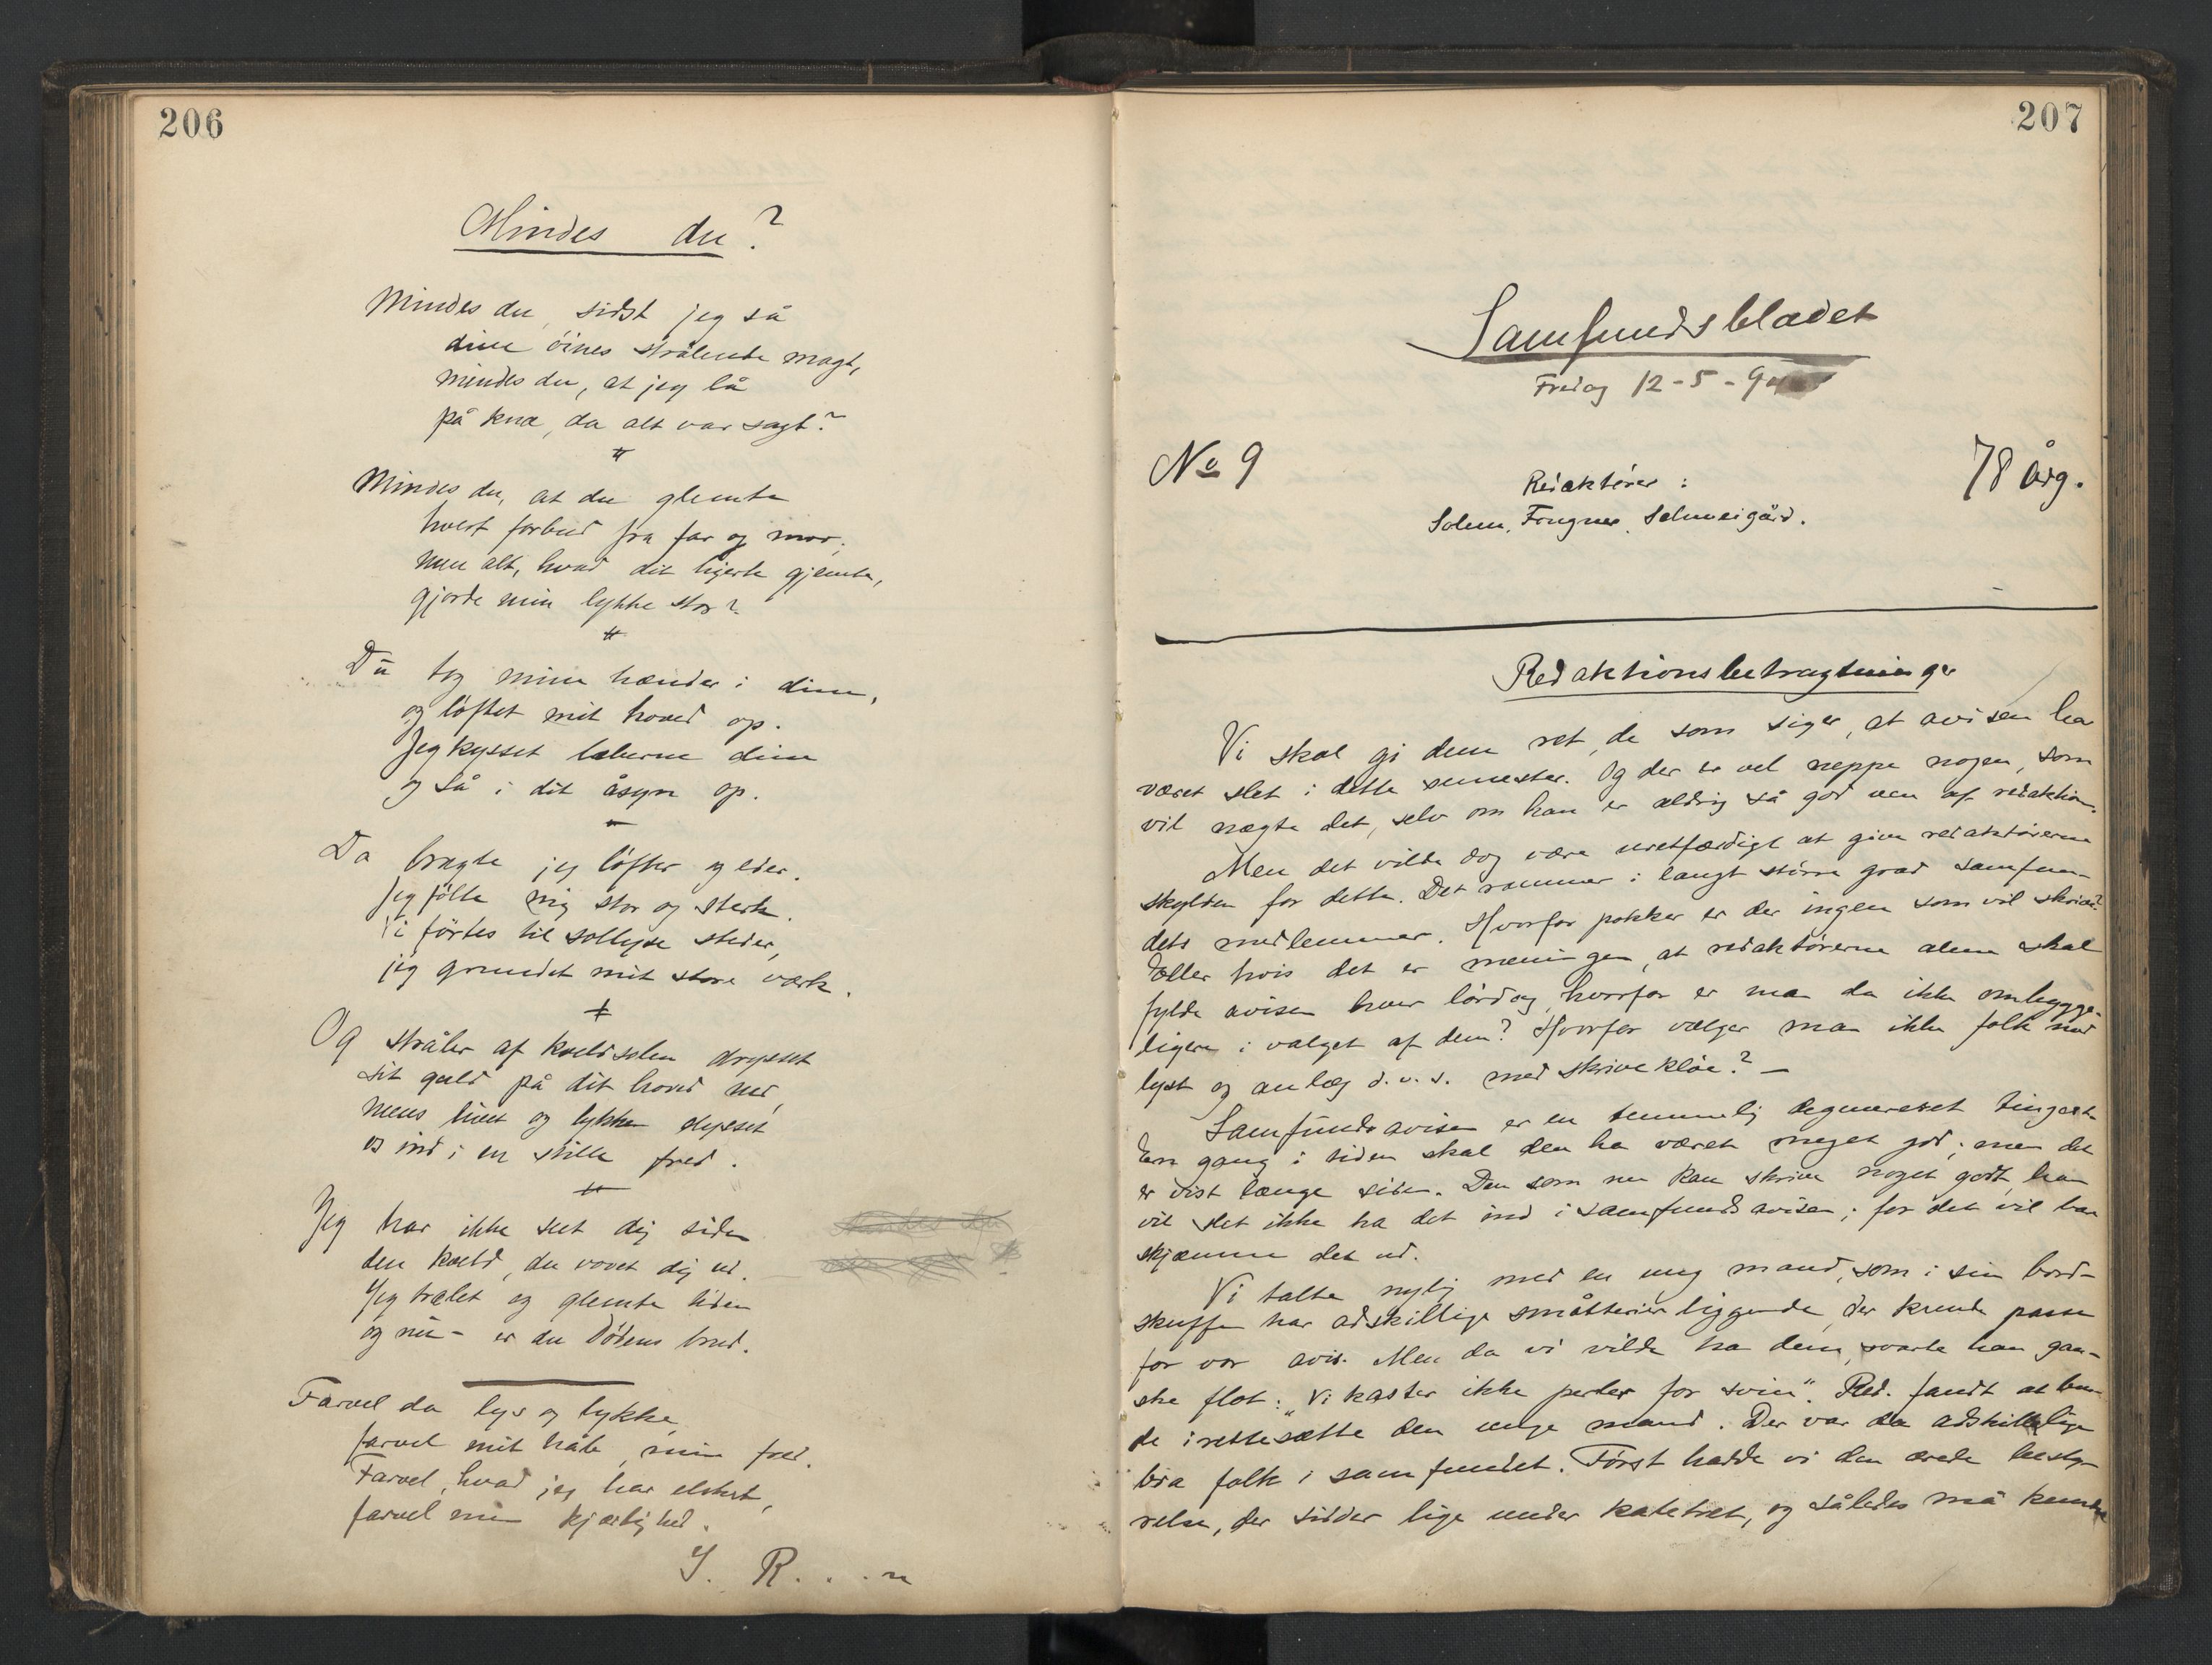 206
Mindes du?
Mindes du, sidst jeg så
dine öines strålende magt,
mindes du, at jeg lå
på knæ, da alt var sagt?
Mindes du, at du glemte
hvert forbud fra far og mor,
men alt, hvad dit hjerte gjemte,
gjorde min lykke stor?
Du tog mine hænder i dine,
og löftet mit hoved op.
Jeg kysset læberne dine
og så i dit åsyn op.
Da bragte jeg löfter og eder.
Jeg fölte mig stor og sterk.
Vi förtes til sollyse steder,
jeg grundet mit store værk.
Og stråler af kveldsolen dryppet
sit guld på dit hoved ned,
mens livet og lykken slyppet
os ind i en stille fred.
Jeg har ikke seet dig siden
den kveld, du vovet dig ud.
Jeg trælet og glemte tiden
og nu - er du Dödens brud.
Farvel da lys og lykke,
farvel mit håb, min fred.
Farvel, hvad jeg har elsket,
farvel min kjærlighed.
S. R. . . n
207
Samfundsbladet
Fredag 12-5-9
No 9
78 årg.
Redaktörer:
Solem, Fougner, Schweigård.
Redaktionsbetragtninger
Vi skal gi dem ret, de som siger, at avisen har
været slet i dette semester. Og der er vel neppe nogen, som
vil nægte det, selv om han er aldrig så god ven af redaktion.
Men det vilde dog være uretfærdigt at give redaktörerne
skylden for dette. Det rammer i langt större grad samfun-
dets medlemmer. Hvorfor pokker er der ingen som vil skrive?
Eller hvis det er meningen, at redaktörerne alene skal
fylde avisen hver lördag, hvorfor er man da ikke omhygge-
ligere i valget af dem? Hvorfor vælger man ikke folk med
lyst og anlæg d.v.s. med skriveklöe? -
Samfundsavisen er en temmelig degenereret tingest
En gang i tiden skal den ha været meget god; men det
er vist længe siden. Den som nu kan skrive noget godt, han
vil slet ikke ha det ind i samfundsavisen; for det vil bare
skjæmme det ud.
Vi talte nylig med en ung mand, som i sin bord-
skuffe har adskillige småtterier liggende, der kunde passe
for vor avis. Men da vi vilde ha dem, svarte han gan-
ske flot: "Vi kaster ikke perler for svin". Red. fandt at bur-
de irettesætte den unge mand. Der var da adskillige
bra folk i samfundet. Först hadde vi den ærede besty-
relse, der sidder lige under katetret, og således må kunne